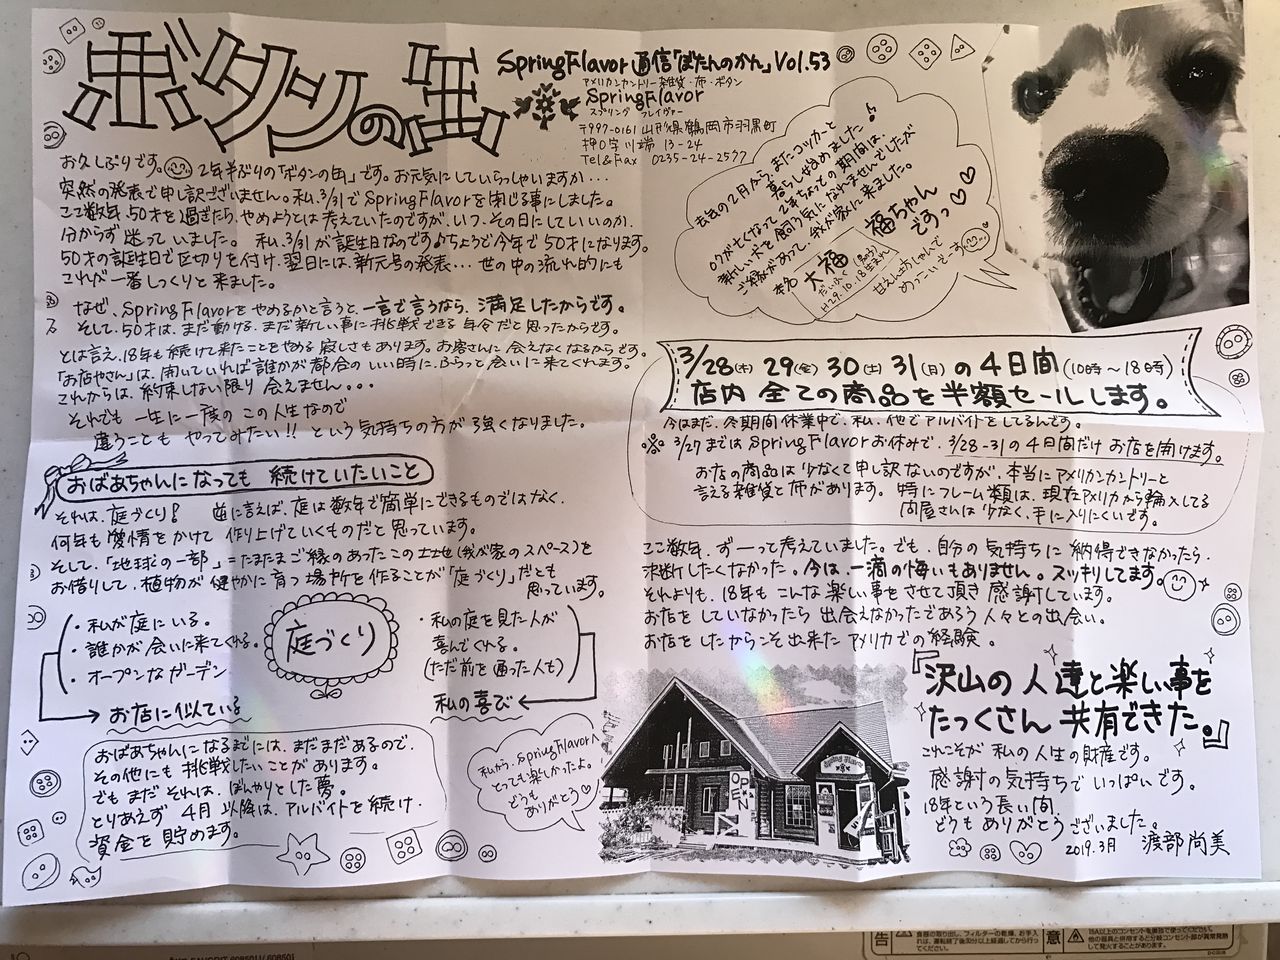 ボタンの缶
SpringFlavor通信「ぼたんのかん」Vol.53
アメリカンカントリー雑貨・布・ボタン
SpringFlavor
スプリング フレイヴァー
〒997-0161 山形県鶴岡市羽黒町
押口字川端 13-24
Tel&Fax 0235-24-2577
お久しぶりです。2年半ぶりの「ボタンの缶」です。お元気にしていらっしゃいますか...
突然の発表で申し訳ございません。私、3/31でSpringFlavorを閉じる事にしました。
ここ数年、50才を過ぎたら、やめようとは考えていたのですが、いつ、その日にしていいのか、
分からず迷っていました。私、3/31が誕生日なのです♪ちょうど今年で50才になります。
50才の誕生日で区切りを付け、翌日には、新元号の発表... 世の中の流れ的にも
これが一番しっくりと来ました。
なぜ、SpringFlavorをやめるかと言うと、一言で言うなら、満足したからです。
そして、50才は、まだ動ける、まだ新しい事に挑戦できる年令だと思ったからです。
とは言え、18年も続けて来たことをやめる寂しさもあります。お客さんに会えなくなるからです。
「お店やさん」は、開いていれば誰かが都合のいい時に、ふらっと会いに来てくれます。
これからは、約束しない限り会えません。。。
それでも一生に一度のこの人生なので
違うこともやってみたい!!という気持ちの方が強くなりました。
おばあちゃんになっても 続けていたいこと
それは、庭づくり!
何年も愛情をかけて作り上げていくものだと思っています。
そして、「地球の一部」=たまたまご縁のあったこの土地(我が家のスペース)を
お借りして、植物が健やかに育つ場所を作ることが「庭づくり」だとも
思っています。
・私が庭にいる。
・誰かが会いに来てくれる。
・オープンなガーデン
お店に似ている
庭づくり
・私の庭を見た人が
喜んでくれる。
(ただ前を通った人も)
私の喜び
おばあちゃんになるまでには、まだまだあるので、
その他にも挑戦したいことがあります。
でもまだそれは、ぼんやりとした夢。
とりあえず 4月以降は、アルバイトを続け、
資金を貯めます。
SpringFlavorへ
とても楽しかったよ。
どうも
ありがとう♡
去年の2月から、またコッカーと
暮らし始めました♪
ロクが亡くなって2年ちょっとの期間は、
新しい犬を飼う気になりませんでしたが
ご縁があって、我が家に来ました。
福ちゃん
ですっ♡♡
本名 大福
だいふく
H29.10.18生まれ
甘えん坊しゃんで
めっこいです
3/28(木) 29(金) 30(土) 31(日) の4日間 (10時～18時)
店内 全ての商品を半額セールします。
今はまだ、冬期間休業中で、私、他でアルバイトをしてるんです。
3/27まではSpringFlavorお休みで、3/28-31の4日間だけお店を開けます。
お店の商品は少なくて申し訳ないのですが、本当にアメリカンカントリーと
言える雑貨と布があります。特にフレーム類は、現在アメリカから輸入してる
問屋さんは少なく、手に入りにくいです。
ここ数年、ずーっと考えていました。でも、自分の気持ちに納得できなかったら、
決断したくなかった。今は、一滴の悔いもありません。スッキリしてます。
それよりも、18年もこんな楽しい事をさせて頂き感謝しています。
お店をしていなかったら出会えなかったであろう人々との出会い。
お店をしたからこそ出来たアメリカでの経験。
『沢山の人達と楽しい事を
たっくさん共有できた。』
これこそが私の人生の財産です。
感謝の気持ちでいっぱいです。
18年という長い間、
どうもありがとうございました。
2019.3月 渡部尚美
Spring Flavor
OPEN
告
食器の取り出し、フィルターの乾燥、お手入
意
15A以上のコンセントを単独で使ってください。
他の器具と併用すると分岐コンセント部が異常発熱
して発火することがあります。